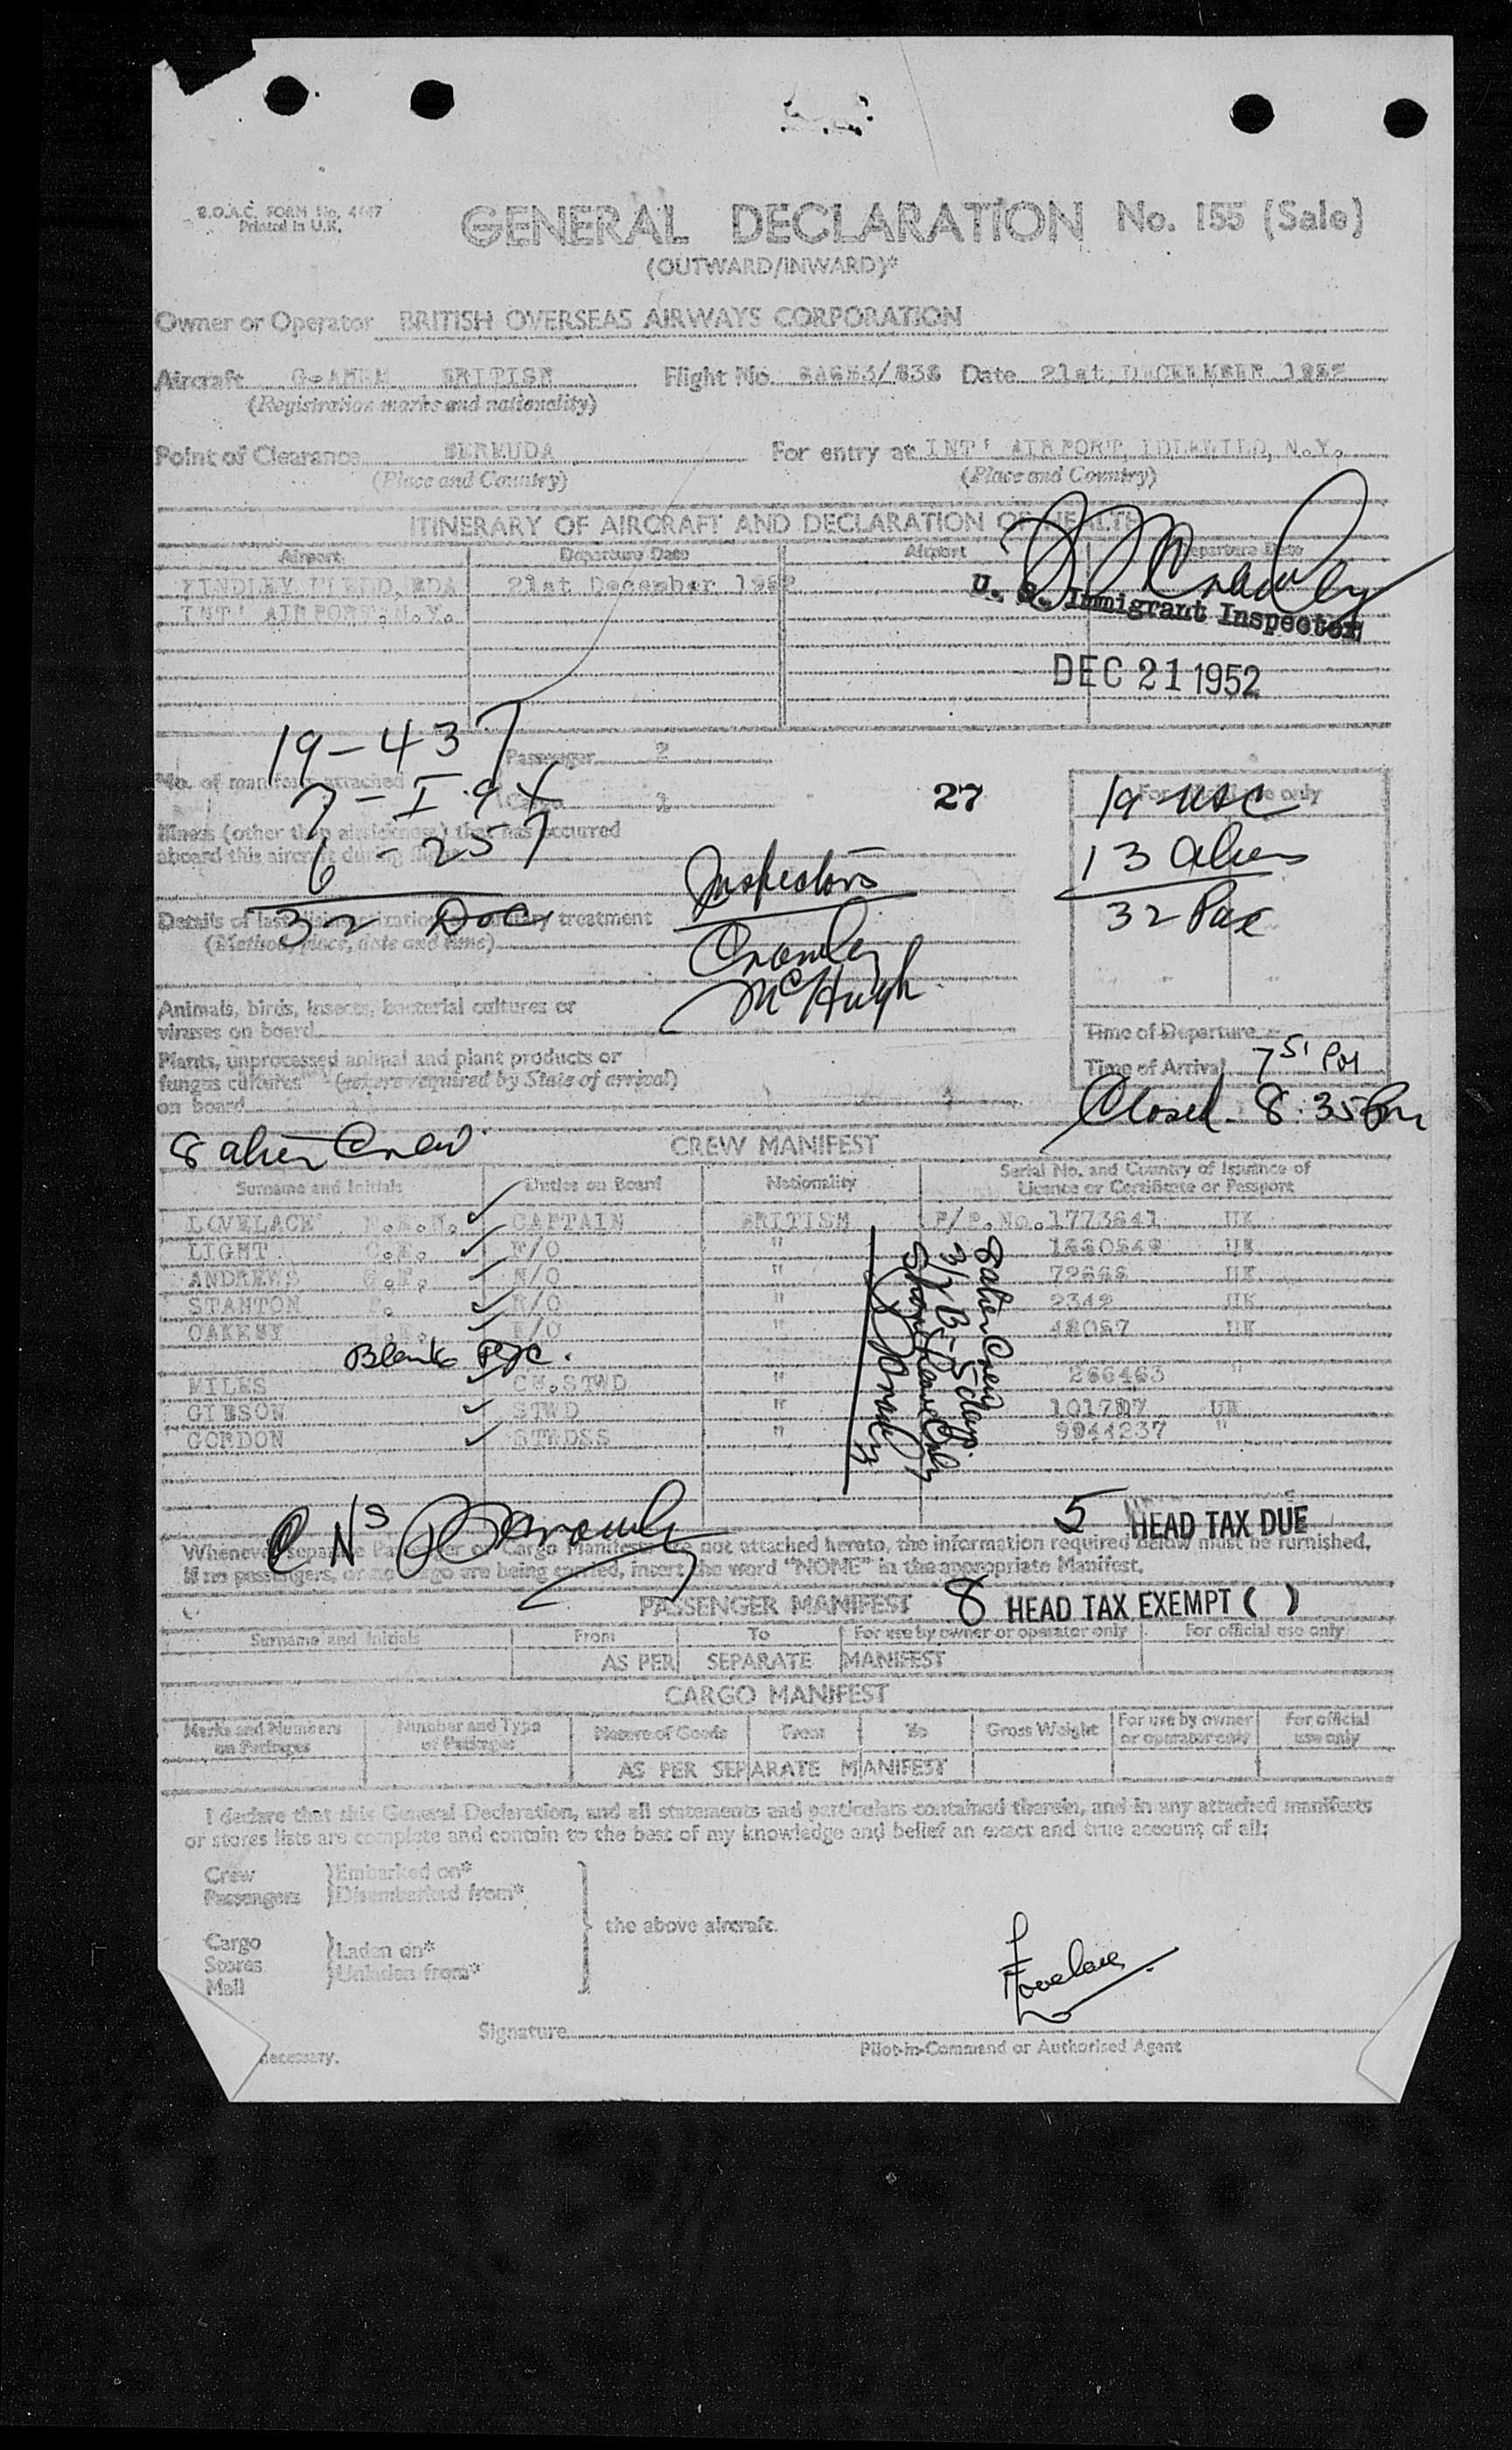 B.O.A.C. FORM No. 4447
Printed in U.K.
GENERAL DECLARATION No. 155 (Sale)
(OUTWARD/INWARD)*
Owner or Operator BRITISH OVERSEAS AIRWAYS CORPORATION
Aircraft BRITISH Flight No. Date 21st DECEMBER 1952
(Registration marks and nationality)
Point of Clearance BERMUDA For entry at INT' AIRPORT, IDLEWILD, N.Y.
(Place and Country) (Place and Country)
ITINERARY OF AIRCRAFT AND DECLARATION OF HEALTH
Airport Departure Date Airport Departure Date
KINDLEY FIELD, BDA 21st December 1952
INT' AIRPORT, N.Y.
Crawley
U. S. Immigrant Inspector
DEC 21 1952
19-437
Passenger 2
No. of manifests attached
7-I.94
Cargo 1
27
For official use only
19 USC
Illness (other than airsickness) that has occurred
aboard this aircraft during flight
6-257
13 Aliens
32 Doc
32 Pax
Inspectors
Crawley
McHugh
Details of last disinsectization or sanitary treatment
(Method, place, date and time)
Animals, birds, insects, bacterial cultures or
viruses on board
Plants, unprocessed animal and plant products or
fungus cultures (where required by State of arrival)
on board
Time of Departure
Time of Arrival 7 51 PM
Closed 8:35 Pm
8 alien Crew
CREW MANIFEST
Surname and Initials Duties on Board Nationality Serial No. and Country of Issuance of
Licence or Certificate or Passport
LOVELACE CAPTAIN BRITISH P/P.No.1773641 UK
LIGHT F/O " UK
ANDREWS N/O " UK
STANTON R/O " 2342 UK
OAKESY E/O " UK
Blank
MILES CH.STWD " 266463 "
GIBSON STWD " UK
GORDON STWDSS " 9944237 "
8 alien Crew
Crawley
5 HEAD TAX DUE
Whenever separate Passenger or Cargo Manifests are not attached hereto, the information required below must be furnished.
If no passengers, or no cargo are being carried, insert the word "NONE" in the appropriate Manifest.
PASSENGER MANIFEST 8 HEAD TAX EXEMPT ( )
Surname and Initials From To For use by owner or operator only For official use only
AS PER SEPARATE MANIFEST
CARGO MANIFEST
Marks and Numbers on Packages Number and Type of Packages Nature of Goods From To Gross Weight For use by owner or operator only For official use only
AS PER SEPARATE MANIFEST
I declare that this General Declaration, and all statements and particulars contained therein, and in any attached manifests
or stores lists are complete and contain to the best of my knowledge and belief an exact and true account of all:
Crew } Embarked on*
Passengers } Disembarked from*
the above aircraft.
Cargo } Laden on*
Stores } Unladen from*
Mail
Lovelace
Signature
Pilot-in-Command or Authorised Agent
necessary.